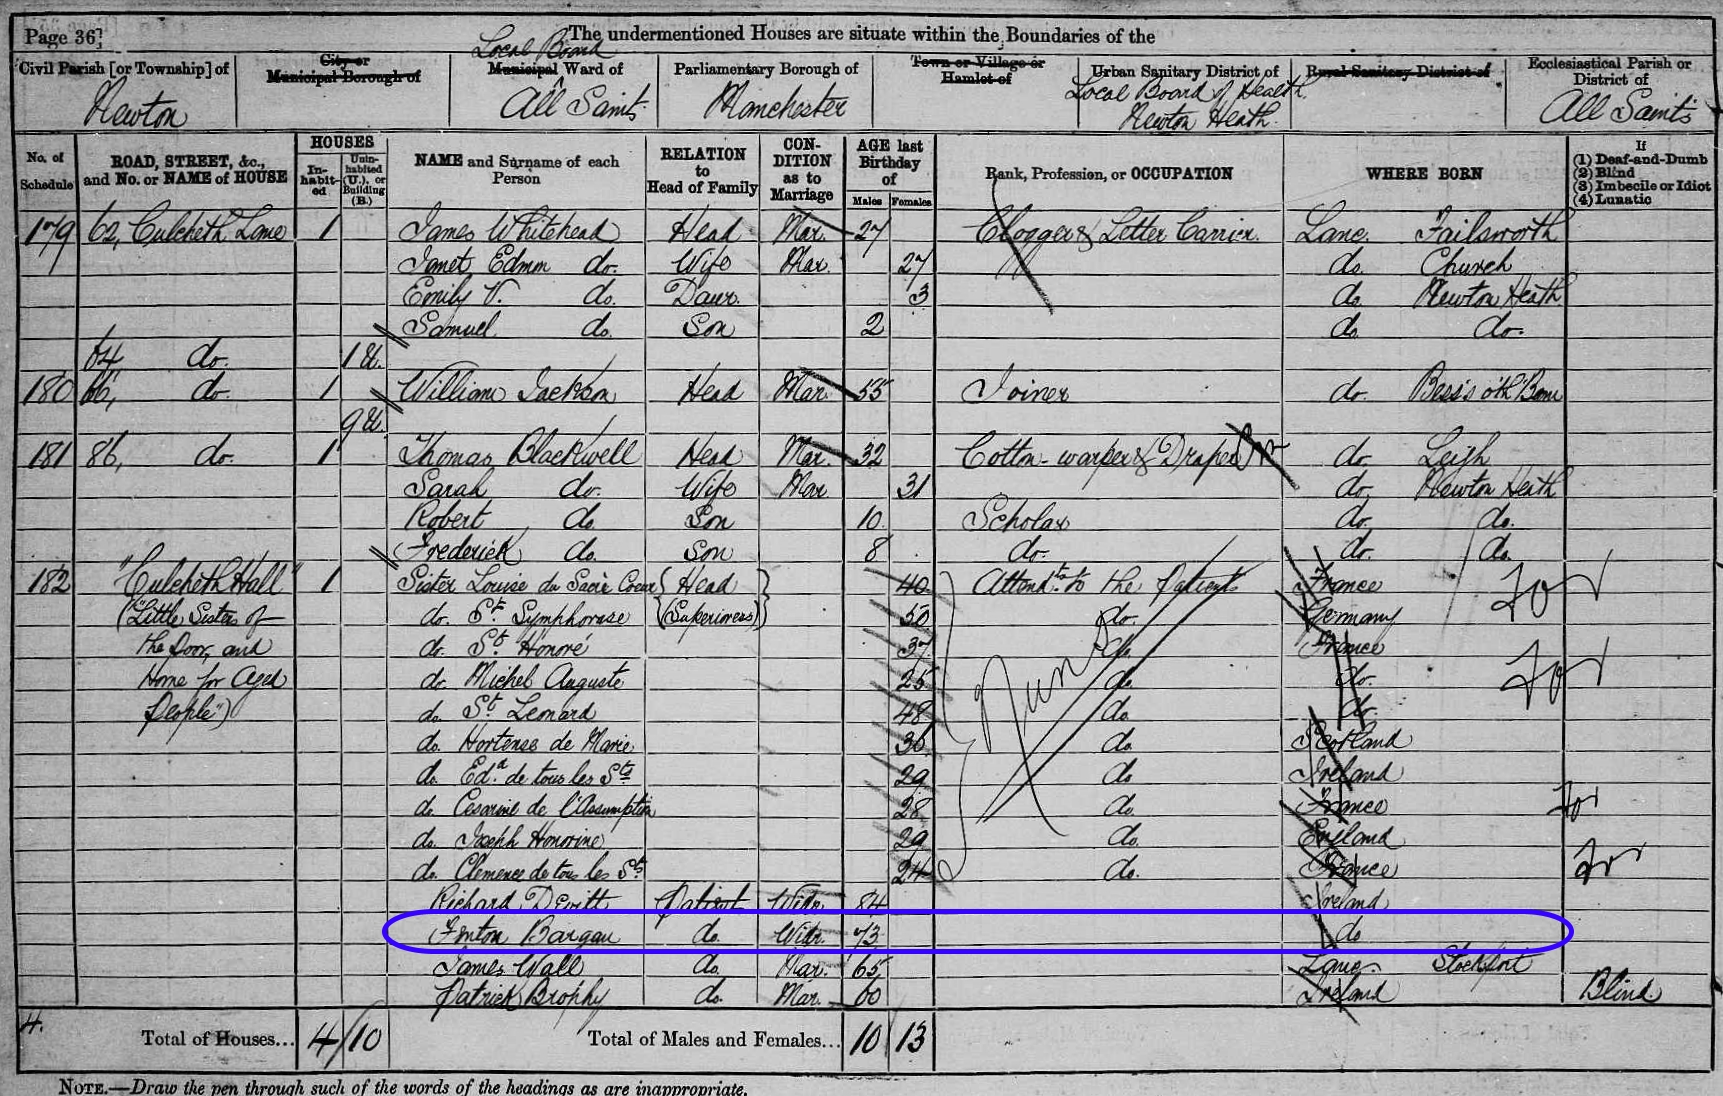 Page 36] The undermentioned Houses are situate within the Boundaries of the
Civil Parish [or Township] of
Newton
City or Municipal Borough of
Local Board
Municipal Ward of
All Saints
Parliamentary Borough of
Manchester
Town or Village or Hamlet of
Urban Sanitary District of
Local Board of Health
Newton Heath.
Rural Sanitary District of
Ecclesiastical Parish or District of
All Saints
No. of Schedule
ROAD, STREET, &c., and No. or NAME of HOUSE
HOUSES
In-habit-ed
Unin-habited (U.), or Building (B.)
NAME and Surname of each Person
RELATION to Head of Family
CON-DITION as to Marriage
AGE last Birthday of
Males Females
Rank, Profession, or OCCUPATION
WHERE BORN
If
(1) Deaf-and-Dumb
(2) Blind
(3) Imbecile or Idiot
(4) Lunatic
179 62, Culcheth Lane 1 James Whitehead Head Mar. 27 Clogger & Letter Carrier Lanc. Failsworth
Janet Edmn do. Wife Mar. 27 do. Church
Emily V. do. Daur. 3 do. Newton Heath
Samuel do. Son 2 do. do.
64 do. 1 U.
180 66, do. 1 William Jackson Head Mar. 55 Joiner do. Bess's o'th' Barn
9 U.
181 86, do. 1 Thomas Blackwell Head Mar. 32 Cotton-warper & Draper do. Leigh
Sarah do. Wife Mar 31 do. Newton Heath
Robert do. Son 10 Scholar do. do.
Frederick do. Son 8 do. do. do.
182 "Culcheth Hall" 1 Sister Louise du Sacré Coeur Head 40 Attendt. to the Patients France
("Little Sisters of do. St. Symphorose (Superioress) 50 do. Germany
the Poor, and do. St. Honoré 37 do. France
Home for Aged do. Michel Auguste 25 do. do.
People") do. St. Leonard 48 do. do.
do. Hortense de Marie 30 do. Scotland
do. Eda. de tous les Sts. 29 do. Ireland
do. Cesarine de l'Assumption 28 do. France
do. Joseph Honorine 29 do. England
do. Clemence de tous les Sts. 24 do. France
Nuns
For
For
For
For
Richard Devitt Patient Widr. 84 Ireland
Finton Bargau do. Widr. 73 do
James Wall do. Mar. 65 Lanc. Stockport
Patrick Brophy do. Mar. 60 Ireland Blind
4.
Total of Houses... 4 10 Total of Males and Females... 10 13
NOTE.—Draw the pen through such of the words of the headings as are inappropriate.